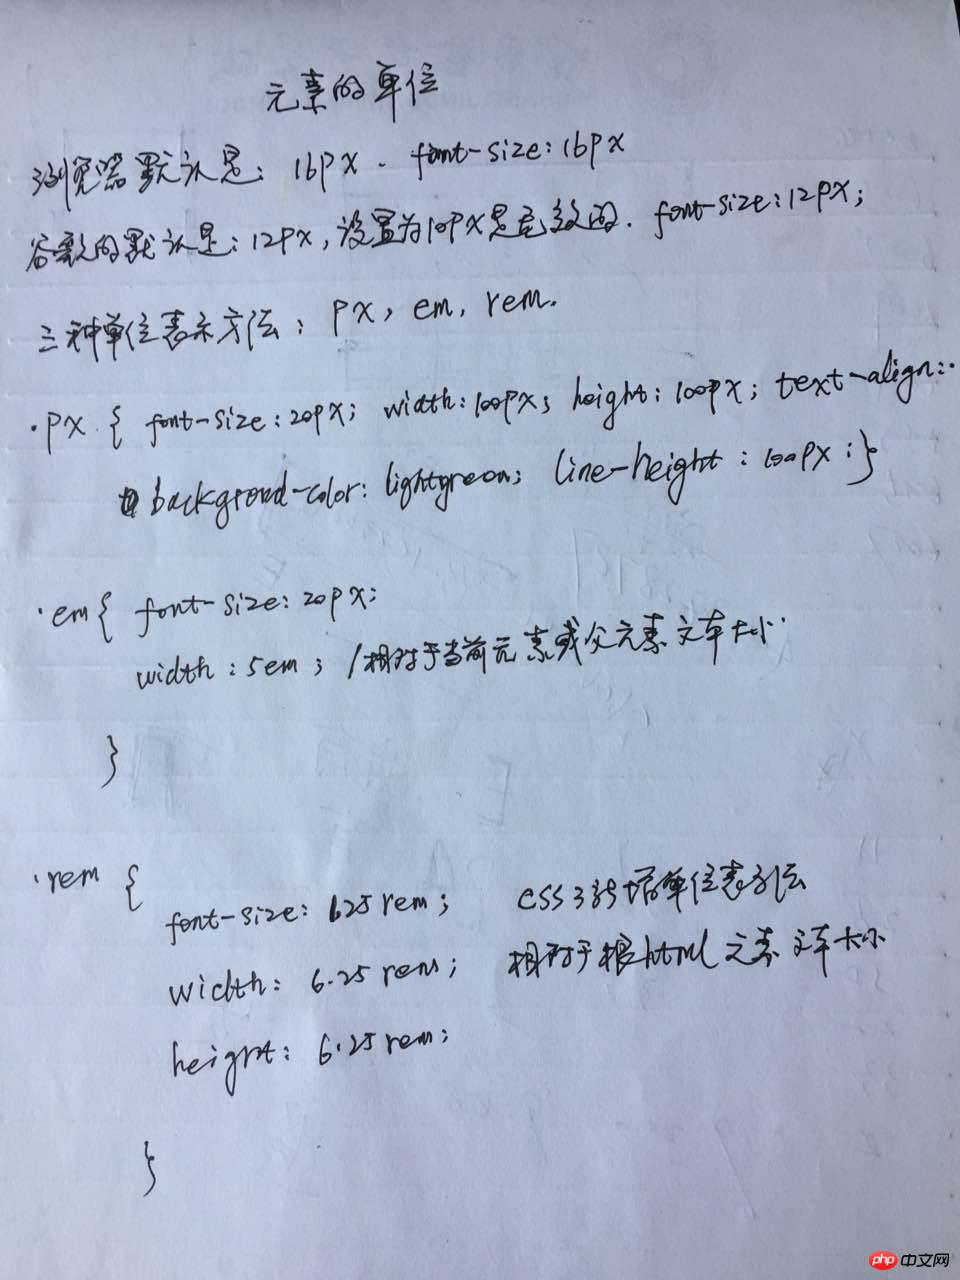 元素的单位
浏览器默认是：16px . font-size: 16px
谷歌的默认是：12px，设置为10px是无效的. font-size: 12px;
三种单位表示方法：px, em, rem.
.px { font-size: 20px; width: 100px; height: 100px; text-align:
background-color: lightgreen; line-height: 100px; }
.em{ font-size: 20px;
width: 5em; /相对于当前元素或父元素文本大小
}
.rem {
font-size: 1.25rem; css3新增单位表方法
width: 6.25rem; 相对于根html元素文本大小
height: 6.25rem;
}
php 中文网